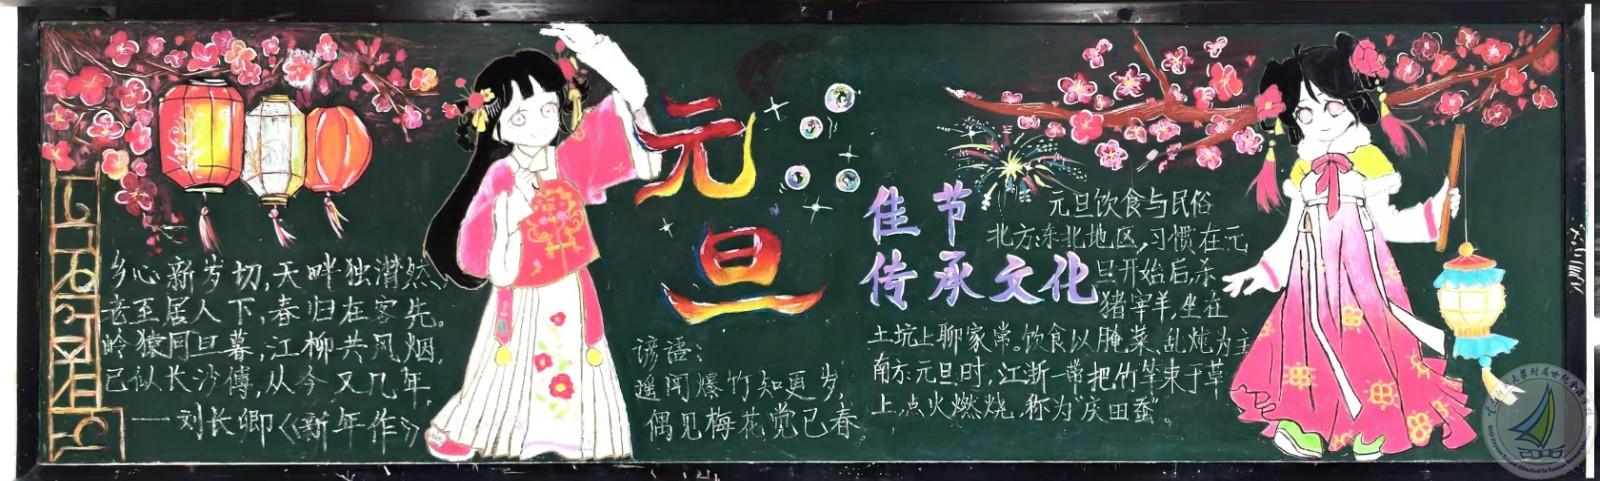 乡心新岁切,天畔独潸然,
老至居人下,春归在客先。
岭猿同旦暮,江柳共风烟,
已似长沙傅,从今又几年,
——刘长卿《新年作》
元旦
谚语:
遥闻爆竹知更岁,
偶见梅花觉已春。
佳节
传承文化
元旦饮食与民俗
北方:东北地区,习惯在元
旦开始后,杀
猪宰羊,坐在
土坑上聊家常。饮食以腌菜、乱炖为主
南方元旦时,江浙一带把竹竿束于草
上,点火燃烧,称为“庆田蚕”。